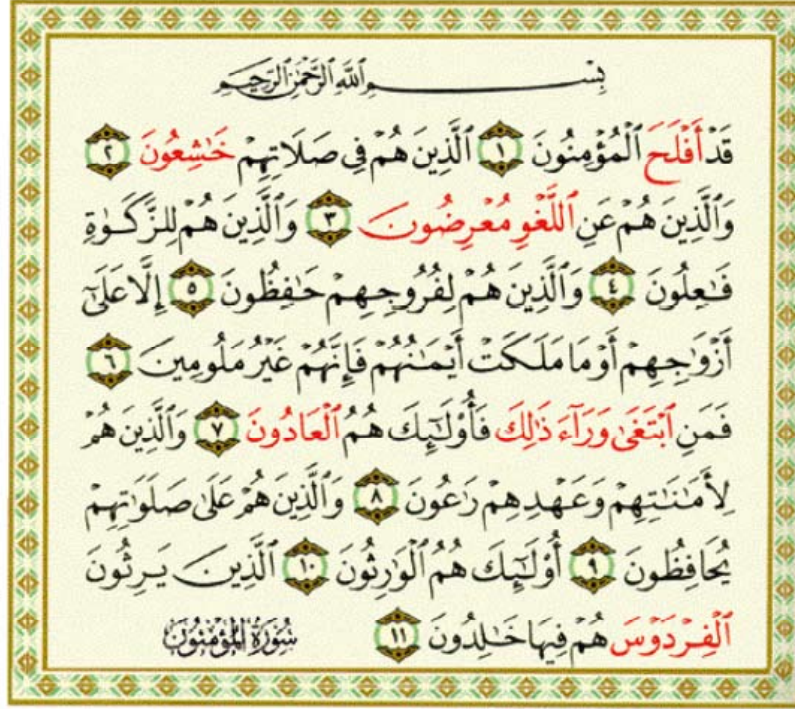 بِسْمِ ٱللَّهِ ٱلرَّحْمَٰنِ ٱلرَّحِيمِ
قَدْ أَفْلَحَ ٱلْمُؤْمِنُونَ ١ ٱلَّذِينَ هُمْ فِى صَلَاتِهِمْ خَٰشِعُونَ ٢
وَٱلَّذِينَ هُمْ عَنِ ٱللَّغْوِ مُعْرِضُونَ ٣ وَٱلَّذِينَ هُمْ لِلزَّكَوٰةِ
فَٰعِلُونَ ٤ وَٱلَّذِينَ هُمْ لِفُرُوجِهِمْ حَٰفِظُونَ ٥ إِلَّا عَلَىٰٓ
أَزْوَٰجِهِمْ أَوْ مَا مَلَكَتْ أَيْمَٰنُهُمْ فَإِنَّهُمْ غَيْرُ مَلُومِينَ ٦
فَمَنِ ٱبْتَغَىٰ وَرَآءَ ذَٰلِكَ فَأُو۟لَٰٓئِكَ هُمُ ٱلْعَادُونَ ٧ وَٱلَّذِينَ هُمْ
لِأَمَٰنَٰتِهِمْ وَعَهْدِهِمْ رَٰعُونَ ٨ وَٱلَّذِينَ هُمْ عَلَىٰ صَلَوَٰتِهِمْ
يُحَافِظُونَ ٩ أُو۟لَٰٓئِكَ هُمُ ٱلْوَٰرِثُونَ ١٠ ٱلَّذِينَ يَرِثُونَ
ٱلْفِرْدَوْسَ هُمْ فِيهَا خَٰلِدُونَ ١١ سُورَةُ الْمُؤْمِنُونَ